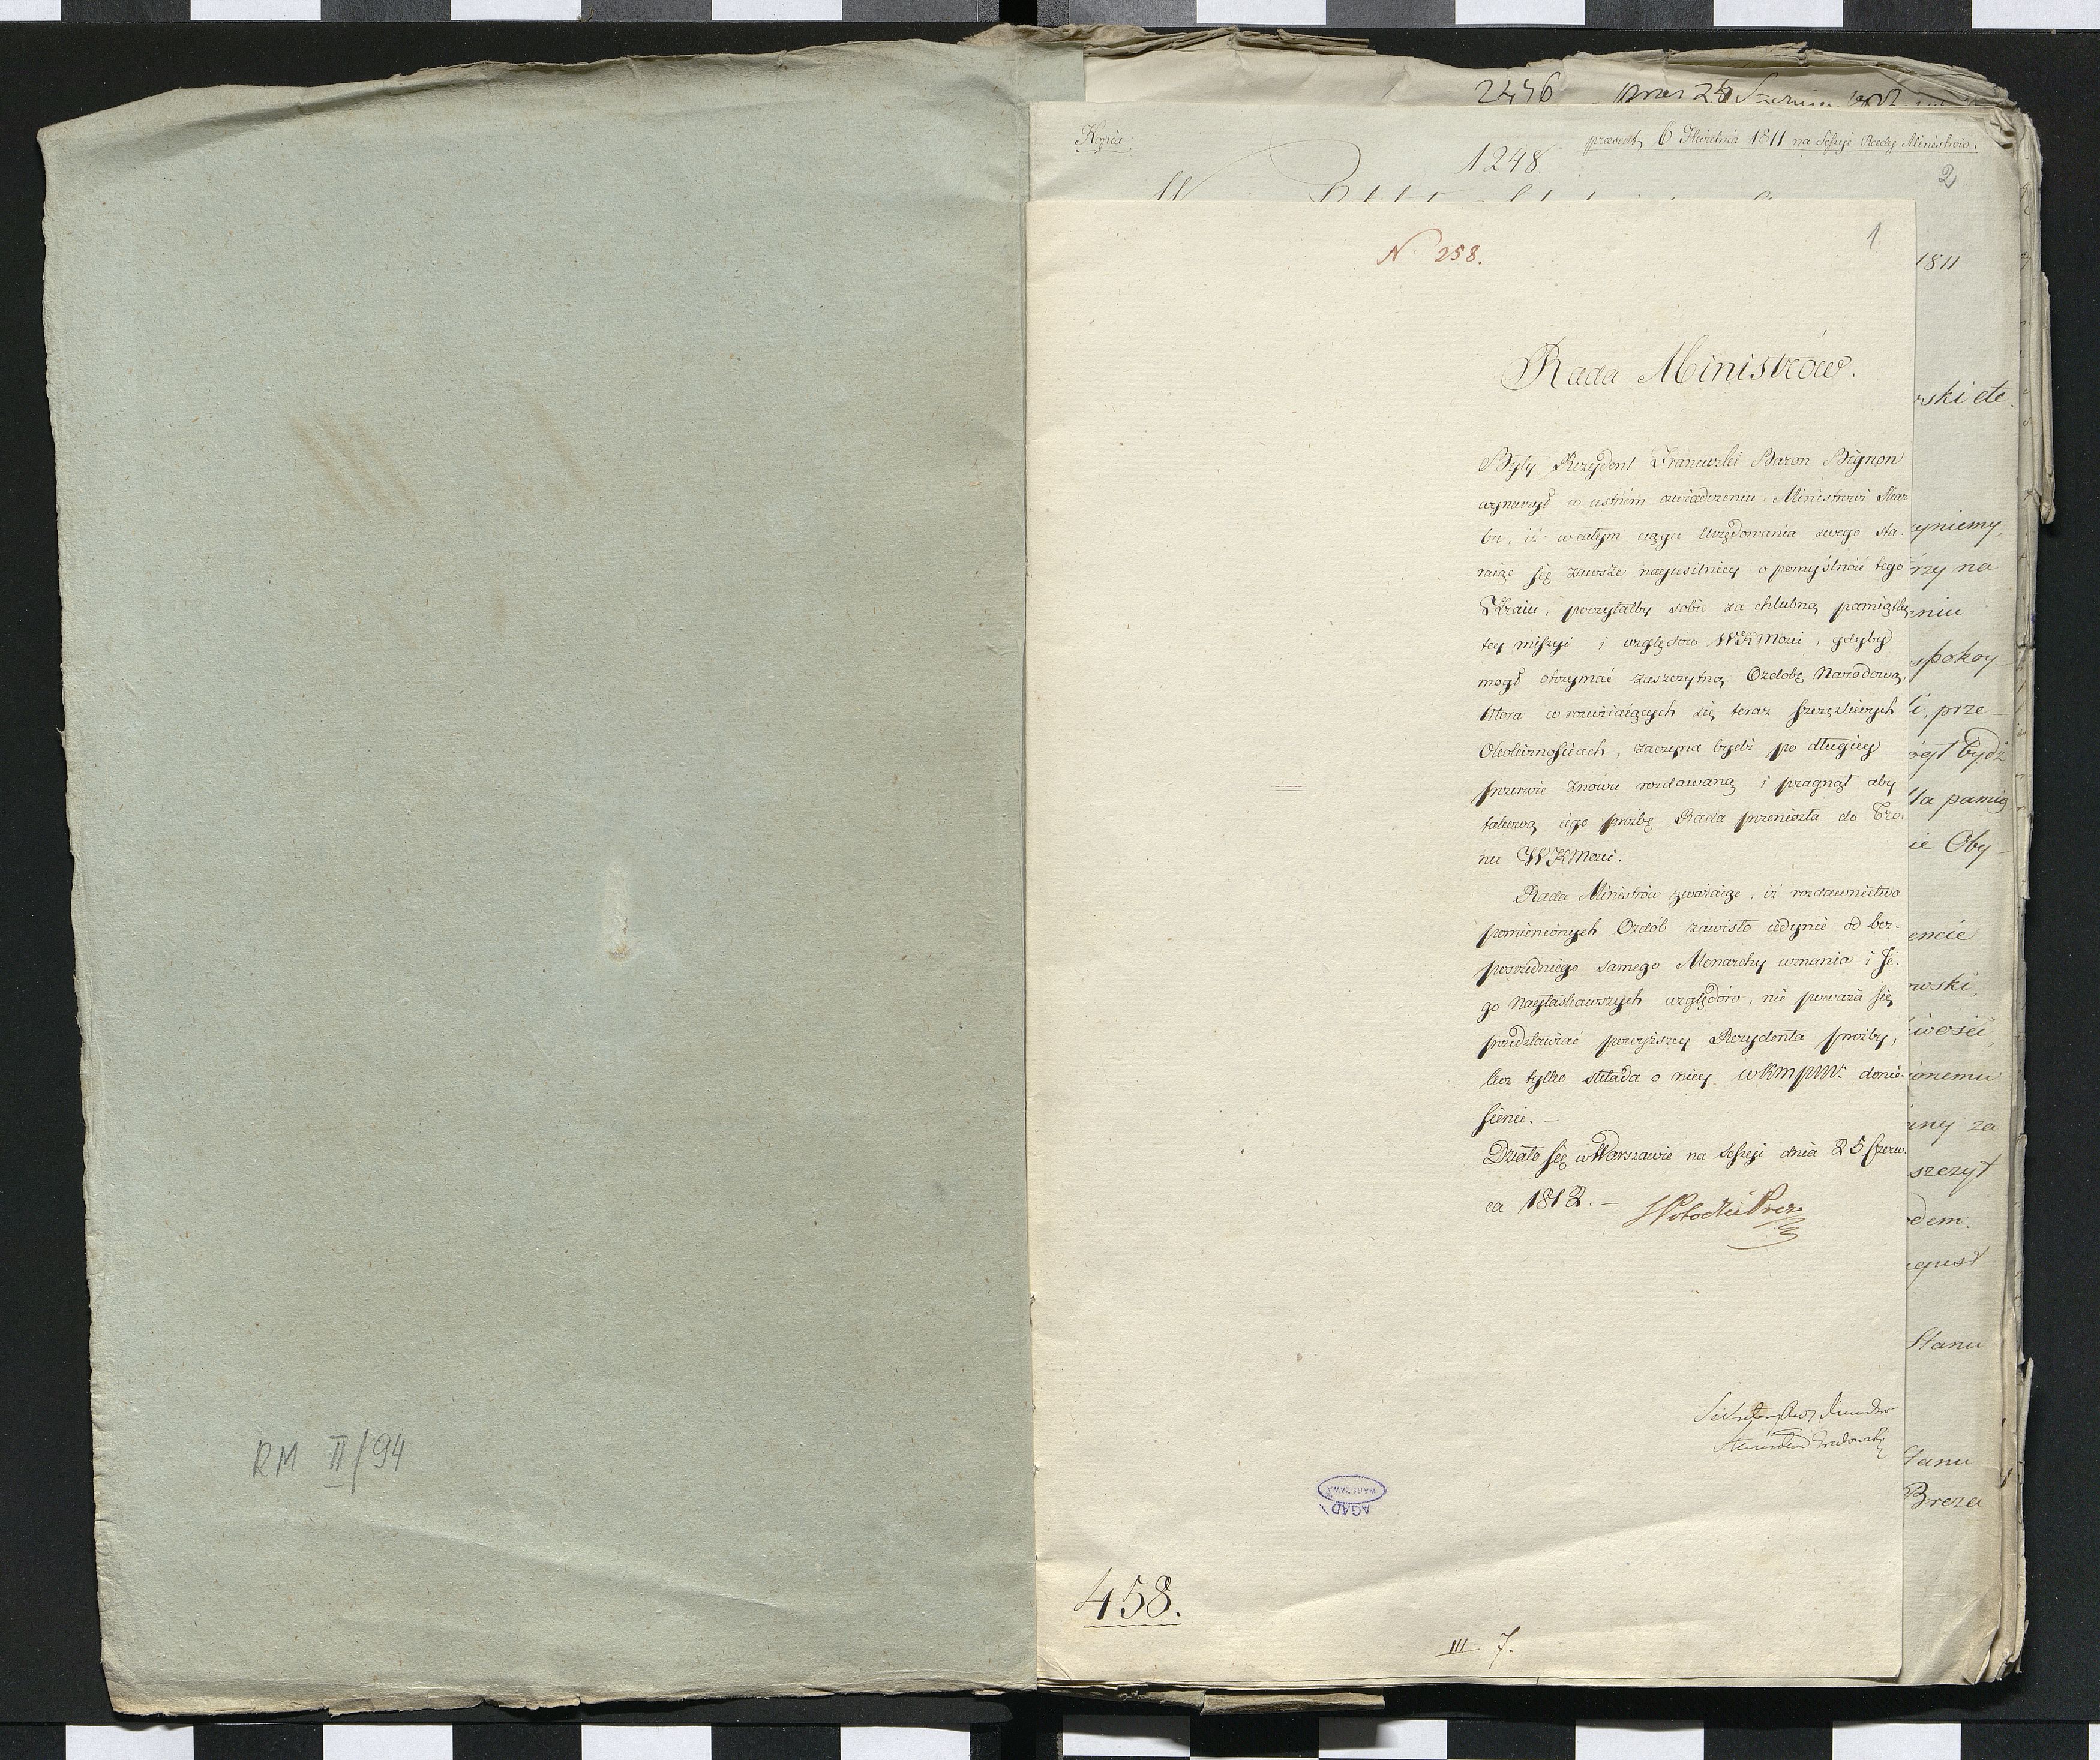 2456
Kopia.
1248.
præsent, 6 Kwietnia 1811 na Sessyi Rady Ministrów.
2
N 258.
1
Rada Ministrów.
Były Rezydent Francuzki Baron Bignon
wynurzył w ustném oświadczeniu Ministrowi Skar
bu, iż w całym ciągu Urzędowania swego sta-
raiąc się zawsze nayusilniey o pomyślność tego
Kraiu, poczytałby sobie za chlubną pamiątkę
tey missyi i względów WKMości, gdyby
mogł otrzymać zaszczytną Ozdobę Narodową,
ktora w rozwiiaiących się teraz szczęśliwych
Okolicznościach, zaczyna bydź po długiey
przerwie znowu rozdawaną i pragnął aby
takową iego prośbę Rada przeniosła do Tro-
nu WKMości.
Rada Ministrów zważaiąc, iż rozdawnictwo
pomienionych Ozdób zawisło iedynie od bez-
pośredniego samego Monarchy uznania i Je-
go Nayłaskawszych względów, nie poważa się
przedstawiać powyższey Rezydenta prośby,
lecz tylko składa o niey WKMPNM. donie-
sienie. –
Działo się w Warszawie na Sessyi dnia 25 Czerw-
ca 1812. – Potocki Prez
458.
III 7.
AGAD
WARSZAWA
RM II/94
1811
rski etc.
zyniemy,
rzy na
eniu
spokoy-
i, prze-
ógł bydź
la pamią-
ie Oby-
encie
wski,
iwości,
ionemu
iny za
szczyt
dem.
egust
Stanu
Stanu
Breza